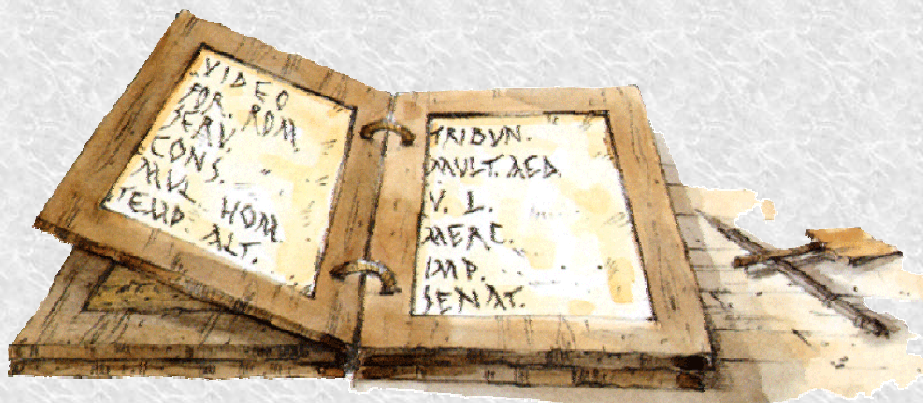 VIDEO
FOR. ROM.
SERV.
CONS.
MUL. HOM.
TEMP. ALT.
TRIBVN.
MULT. AED.
V. L.
MERC.
IMP.
SENAT.